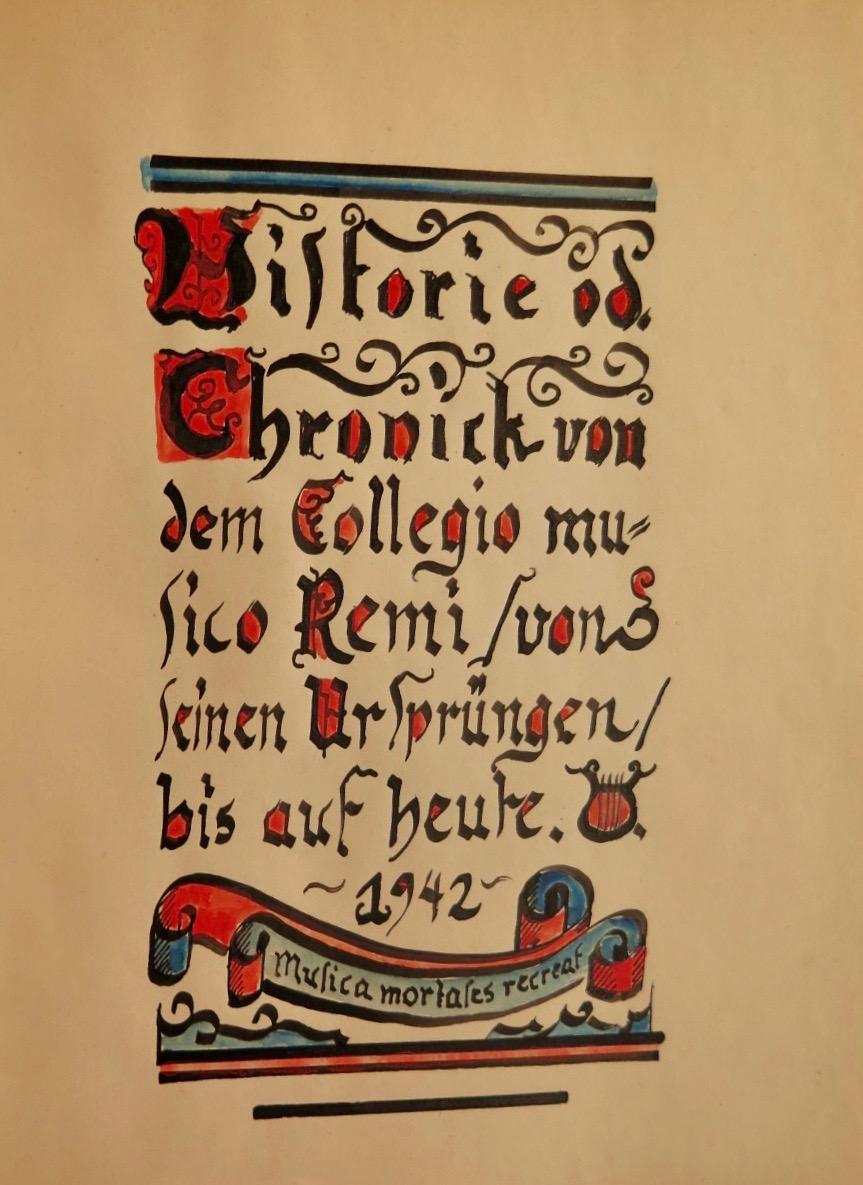 Historie od.
Chronick von
dem Collegio mu-
sico Remi / von
seinen Ursprüngen /
bis auf heute.
~ 1942 ~
Musica mortales recreat